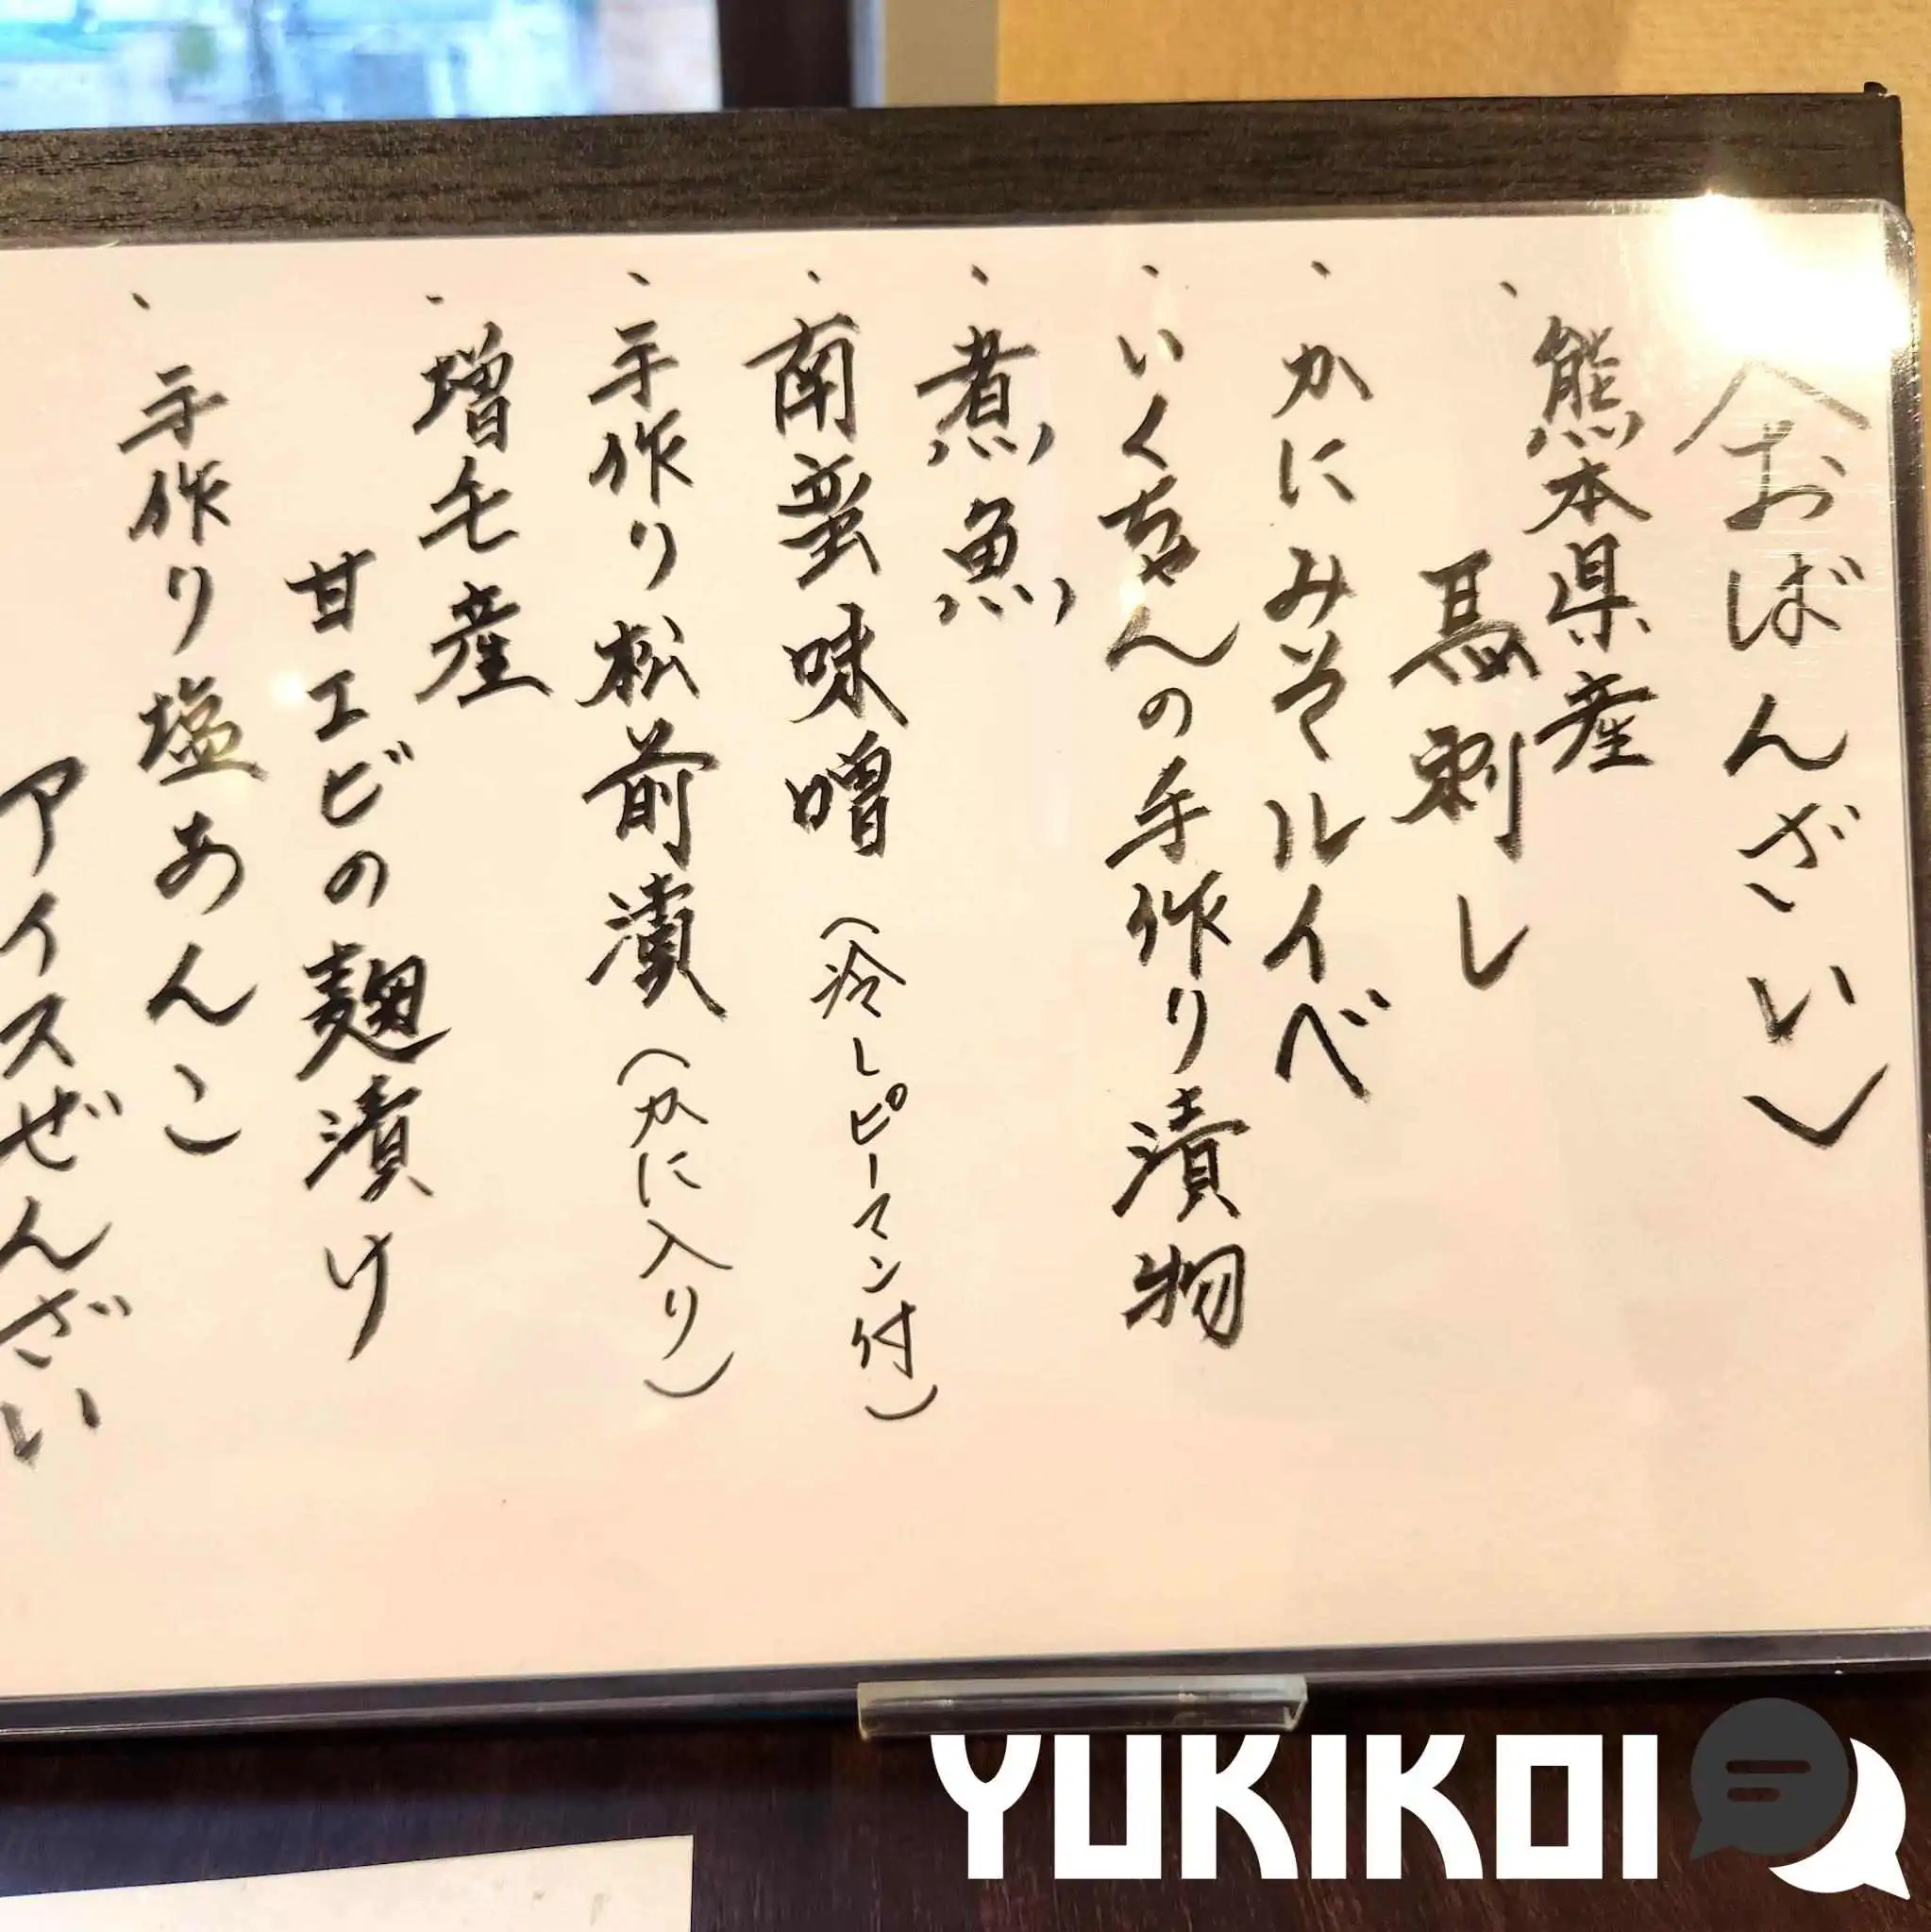 〈おばんざい〉
、熊本県産
馬刺し
、かにみそルイベ
、いくちゃんの手作り漬物
、煮魚
、南蛮味噌(冷しピーマン付)
、手作り松前漬(かに入り)
、増毛産
甘エビの麹漬け
、手作り塩あんこ
アイスぜんざい
YUKIKOI